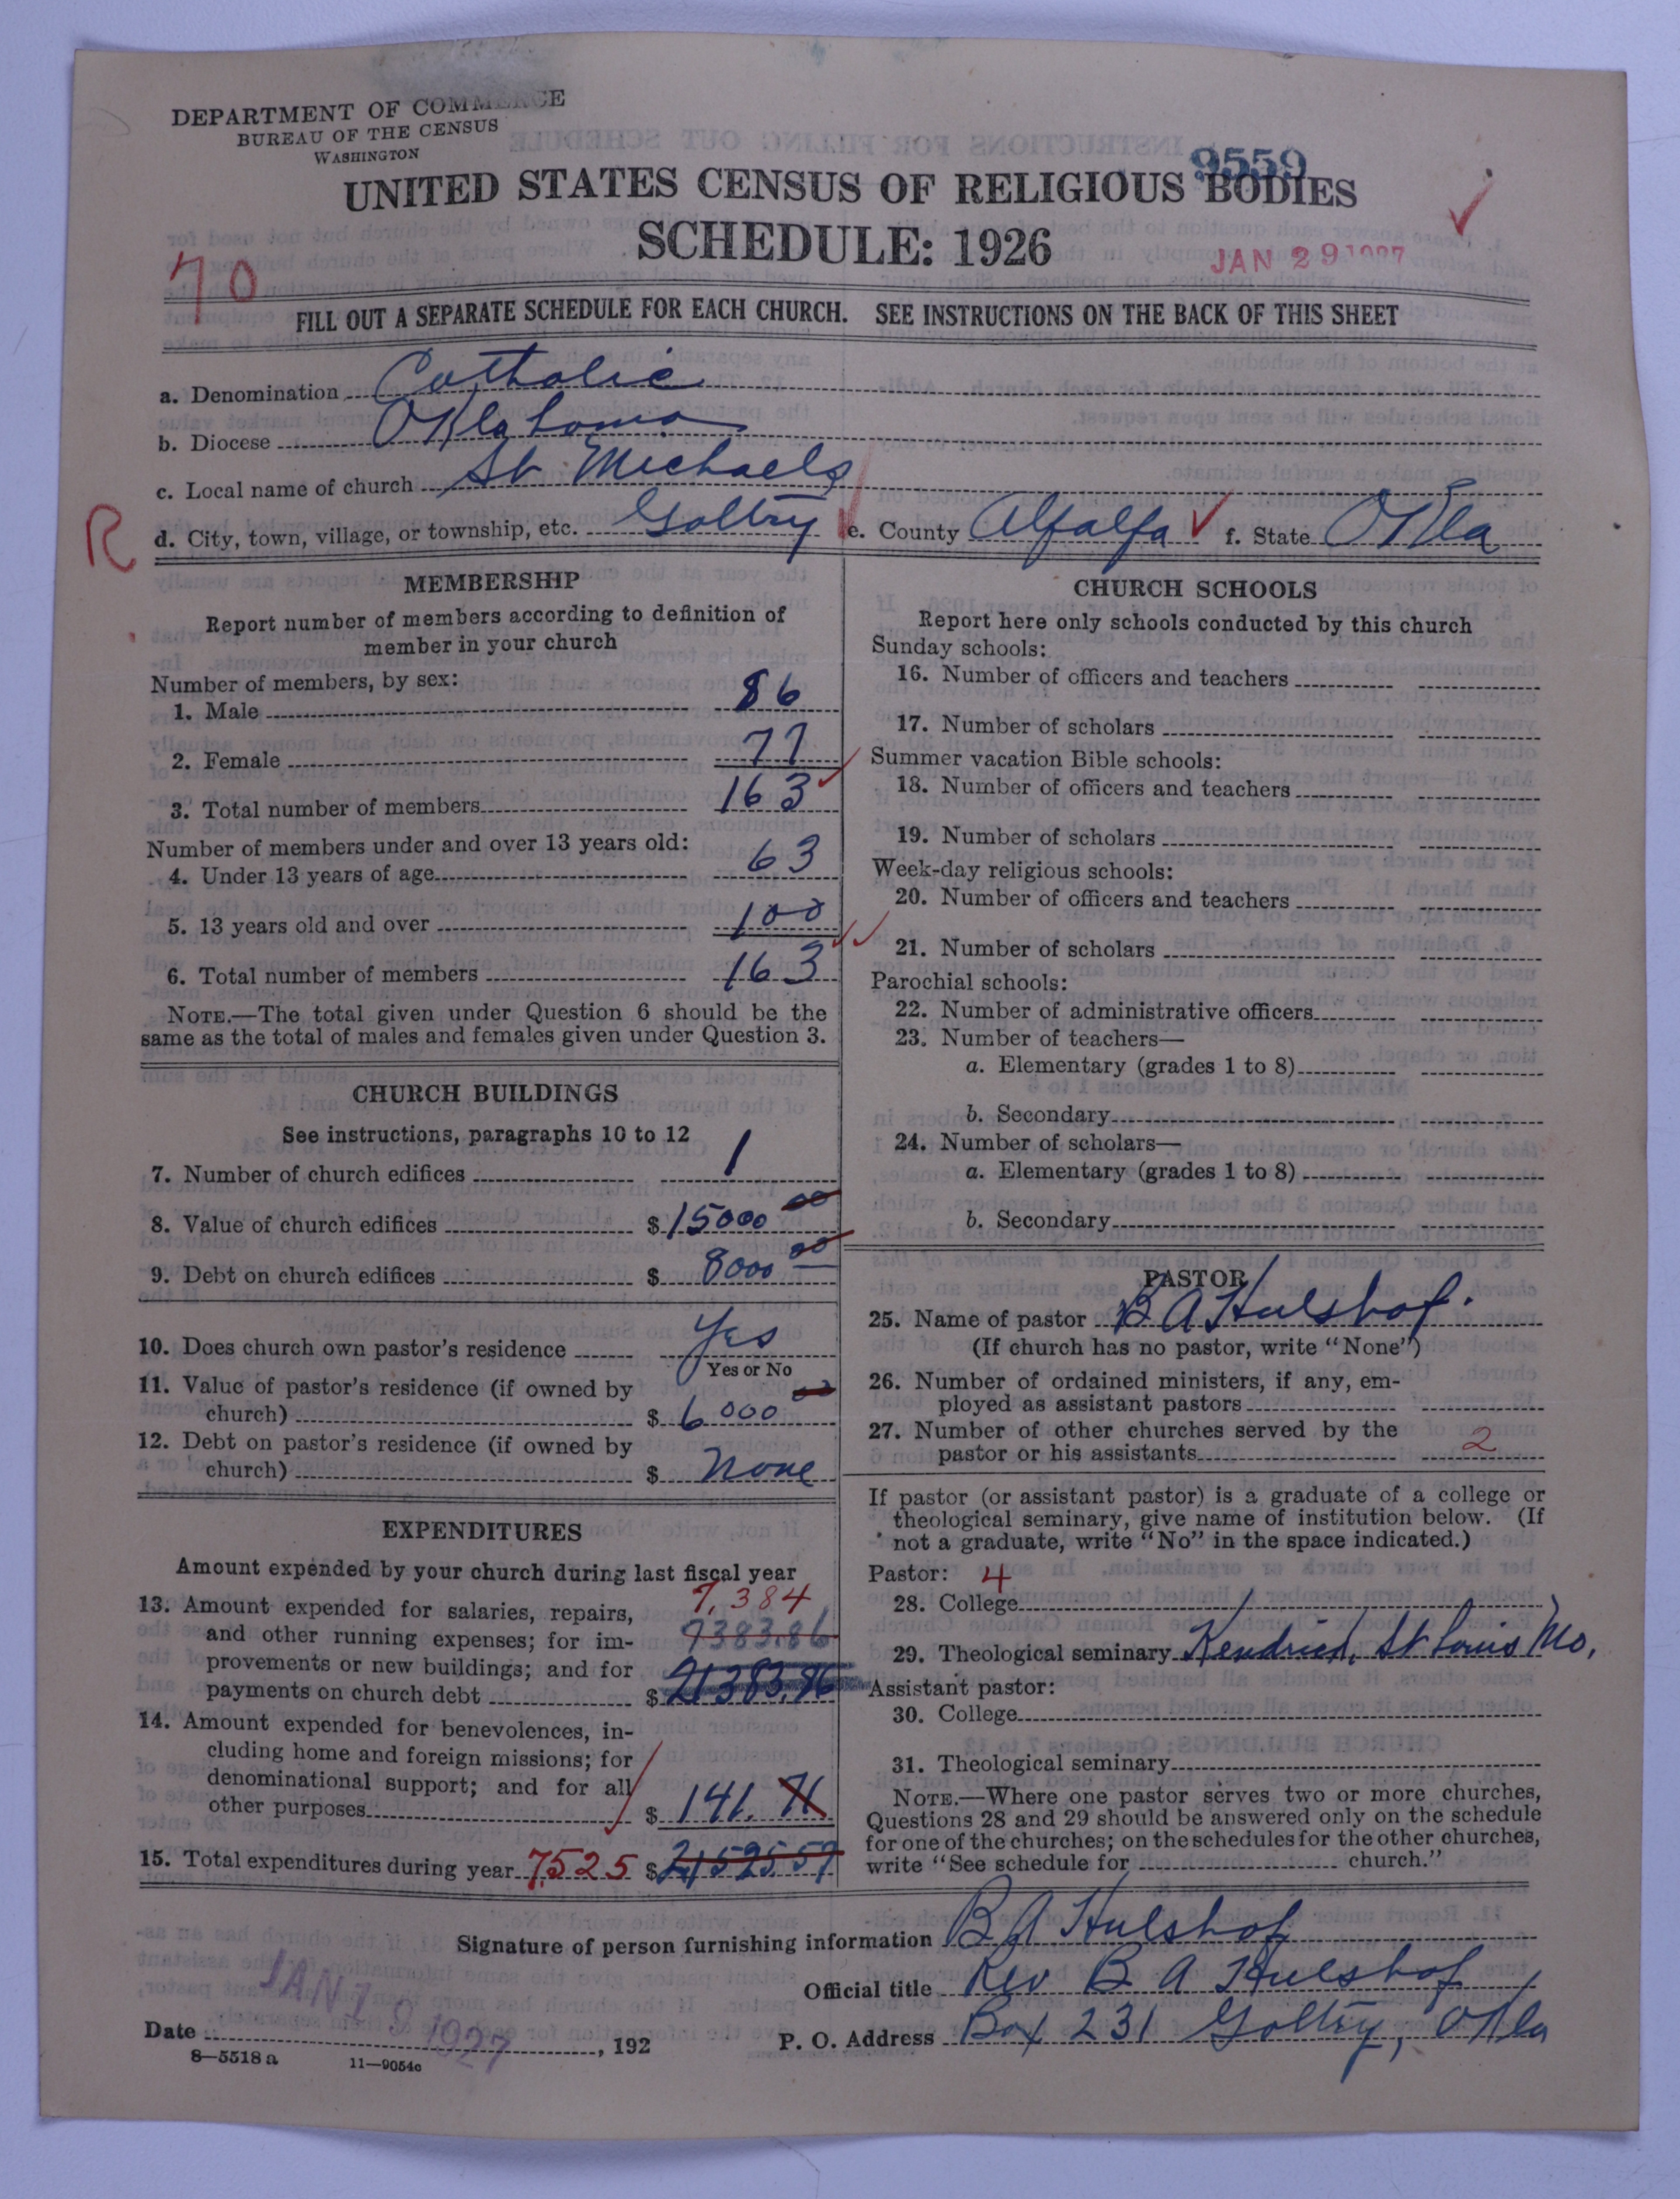 DEPARTMENT OF COMMERCE
BUREAU OF THE CENSUS
WASHINGTON
9559
UNITED STATES CENSUS OF RELIGIOUS BODIES
SCHEDULE: 1926
JAN 29 1927
70
FILL OUT A SEPARATE SCHEDULE FOR EACH CHURCH. SEE INSTRUCTIONS ON THE BACK OF THIS SHEET
a. Denomination Catholic
b. Diocese Oklahoma
c. Local name of church St Michaels
R d. City, town, village, or township, etc. Goltry e. County Alfalfa f. State Okla
MEMBERSHIP
Report number of members according to definition of
member in your church
Number of members, by sex:
1. Male 86
2. Female 77
3. Total number of members 163
Number of members under and over 13 years old:
4. Under 13 years of age 63
5. 13 years old and over 100
6. Total number of members 163
NOTE.—The total given under Question 6 should be the
same as the total of males and females given under Question 3.
CHURCH BUILDINGS
See instructions, paragraphs 10 to 12
7. Number of church edifices 1
8. Value of church edifices $15000 00
9. Debt on church edifices $ 8000 00
10. Does church own pastor's residence Yes
Yes or No
11. Value of pastor's residence (if owned by
church) $ 6000 00
12. Debt on pastor's residence (if owned by
church) $ None
EXPENDITURES
Amount expended by your church during last fiscal year
7,384
13. Amount expended for salaries, repairs,
and other running expenses; for im- 7383.86
provements or new buildings; and for
payments on church debt $ 21383.86
14. Amount expended for benevolences, in-
cluding home and foreign missions; for
denominational support; and for all
other purposes $ 141.71
15. Total expenditures during year 7,525 $ 21525 57
CHURCH SCHOOLS
Report here only schools conducted by this church
Sunday schools:
16. Number of officers and teachers
17. Number of scholars
Summer vacation Bible schools:
18. Number of officers and teachers
19. Number of scholars
Week-day religious schools:
20. Number of officers and teachers
21. Number of scholars
Parochial schools:
22. Number of administrative officers
23. Number of teachers—
a. Elementary (grades 1 to 8)
b. Secondary
24. Number of scholars—
a. Elementary (grades 1 to 8)
b. Secondary
PASTOR
25. Name of pastor B A Hulshof.
(If church has no pastor, write "None")
26. Number of ordained ministers, if any, em-
ployed as assistant pastors
27. Number of other churches served by the
pastor or his assistants 2
If pastor (or assistant pastor) is a graduate of a college or
theological seminary, give name of institution below. (If
not a graduate, write "No" in the space indicated.)
Pastor: 4
28. College
29. Theological seminary Kendrick, St Louis Mo.
Assistant pastor:
30. College
31. Theological seminary
NOTE.—Where one pastor serves two or more churches,
Questions 28 and 29 should be answered only on the schedule
for one of the churches; on the schedules for the other churches,
write "See schedule for church."
Signature of person furnishing information B A Hulshof
Official title Rev B A Hulshof
P. O. Address Box 231 Goltry, Okla
Date JAN 19 1927, 192
8—5518 a 11—9054c